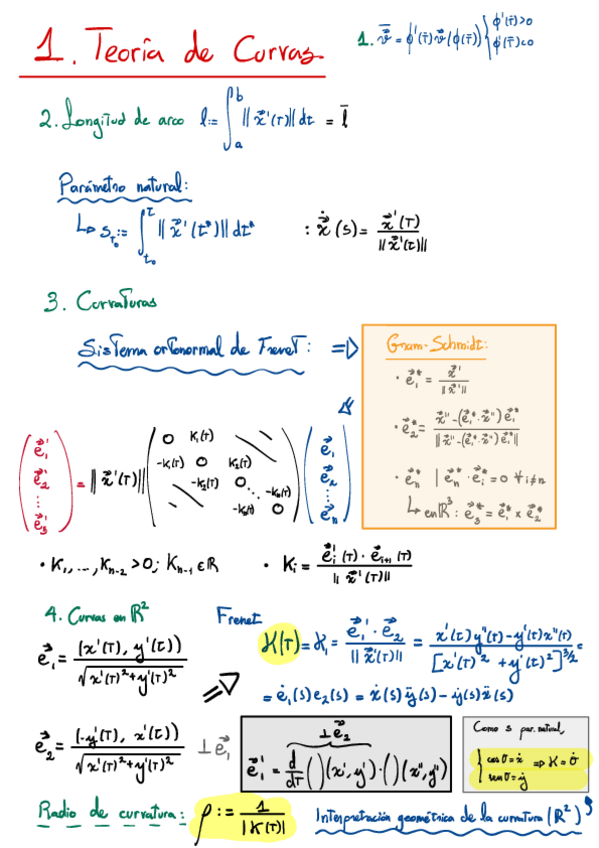 1. Teoría de Curvas
1. v̄ = φ'(t̄) v⃗(φ(t̄)) { φ'(t̄)>0
φ'(t̄)<0
2. Longitud de arco l := ∫_a^b ‖x⃗'(t)‖ dt = l̄
Parámetro natural:
↳ s_{t₀} := ∫_{t₀}^{t} ‖x⃗'(t*)‖ dt* : ẋ⃗(s) = x⃗'(t) / ‖x⃗'(t)‖
3. Curvaturas
Sistema ortonormal de Frenet: ⇒
Gram-Schmidt:
• e⃗₁* = x⃗' / ‖x⃗'‖
• e⃗₂* = x⃗''-(e⃗₁*·x⃗'')e⃗₁* / ‖x⃗''-(e⃗₁*·x⃗'')e⃗₁*‖
• e⃗n* | e⃗n*·e⃗i* = 0 ∀ i≠n
↳ en ℝ³: e⃗₃* = e⃗₁* x e⃗₂*
( e⃗₁' e⃗₂' ... e⃗₃' ) = ‖x⃗'(t)‖ ( 0 K₁(t) -K₁(t) 0 K₂(t) -K₂(t) 0 ... -Kₙ(t) -Kₙ(t) 0 ) ( e⃗₁ e⃗₂ ... e⃗n )
• K₁,...,Kₙ₋₂ > 0; Kₙ₋₁ ∈ ℝ • Ki = e⃗i'(t)·e⃗i+1(t) / ‖x⃗'(t)‖
4. Curvas en ℝ²
Frenet
e⃗₁ = (x'(t), y'(t)) / √(x'(t)²+y'(t)²)
⇒ K(t) = K₁ = e⃗₁'·e⃗₂ / ‖x⃗'(t)‖ = x'(t)y''(t)-y'(t)x''(t) / [x'(t)²+y'(t)²]^{3/2} =
= ė₁(s)e₂(s) = ẋ(s)ÿ(s) - ẏ(s)ẍ(s)
e⃗₂ = (-y'(t), x'(t)) / √(x'(t)²+y'(t)²) ⊥ e⃗₁
⊥ e⃗₂
e⃗₁' = d/dt ( )(x',y')·( )(x'',y'')
Como s par. natural,
{ cos σ = ẋ ⇒ K = σ̇
sen σ = ẏ
Radio de curvatura: ρ := 1 / |K(t)|
Interpretación geométrica de la curvatura (ℝ²)